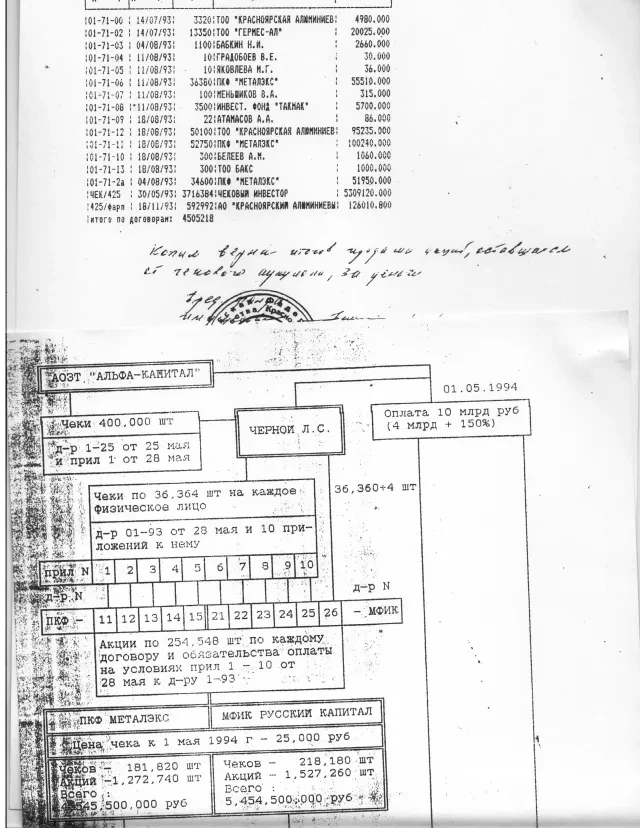 01-71-00 14/07/93 3320 ТОО "КРАСНОЯРСКАЯ АЛЮМИНИЕВ 4980.000
01-71-02 14/07/93 13350 ТОО "ГЕРМЕС-АЛ" 20025.000
01-71-03 04/08/93 1100 БАБКИН Н.И. 2660.000
01-71-04 11/08/93 10 ГРАДОБОЕВ В.Е. 30.000
01-71-05 11/08/93 10 ЯКОВЛЕВА М.Г. 36.000
01-71-06 11/08/93 36380 ПКФ "МЕТАЛЭКС" 55510.000
01-71-07 11/08/93 100 МЕНЬШИКОВ В.А. 315.000
01-71-08 11/08/93 3500 ИНВЕСТ. ФОНД "ТАКМАК" 5700.000
01-71-09 18/08/93 22 АТАМАСОВ А.А. 86.000
01-71-12 18/08/93 50100 ТОО "КРАСНОЯРСКАЯ АЛЮМИНИЕВ 95235.000
01-71-11 18/08/93 52750 ПКФ "МЕТАЛЭКС" 100240.000
01-71-10 18/08/93 300 БЕЛЕЕВ А.М. 1060.000
01-71-13 18/08/93 300 ТОО БАКС 1000.000
01-71-2а 04/08/93 34600 ПКФ "МЕТАЛЭКС" 51950.000
ЧЕК/425 30/05/93 3716384 ЧЕКОВЫЙ ИНВЕСТОР 5309120.000
425/фарп 18/11/93 592992 АО "КРАСНОЯРСКИЙ АЛЮМИНИЕВЫ 126010.800
итого по договорам: 4505218
Копия верна итогов продажи акций, оставшихся
от чекового аукциона, за деньги
АОЗТ "АЛЬФА-КАПИТАЛ"
01.05.1994
Чеки 400,000 шт
д-р 1-25 от 25 мая
и прил 1 от 28 мая
ЧЕРНОЙ Л.С.
Оплата 10 млрд руб
(4 млрд + 150%)
Чеки по 36,364 шт на каждое
физическое лицо
36,360÷4 шт
д-р 01-93 от 28 мая и 10 при-
ложений к нему
прил N 1 2 3 4 5 6 7 8 9 10
д-р N д-р N
ПКФ - 11 12 13 14 15 21 22 23 24 25 26 - МФИК
Акции по 254,548 шт по каждому
договору и обязательства оплаты
на условиях прил 1 - 10 от
28 мая к д-ру 1-93
ПКФ МЕТАЛЭКС МФИК РУССКИЙ КАПИТАЛ
Цена чека к 1 мая 1994 г - 25,000 руб
Чеков - 181,820 шт Чеков - 218,180 шт
Акций -1,272,740 шт Акций - 1,527,260 шт
Всего : Всего :
4,545,500,000 руб 5,454,500,000 руб